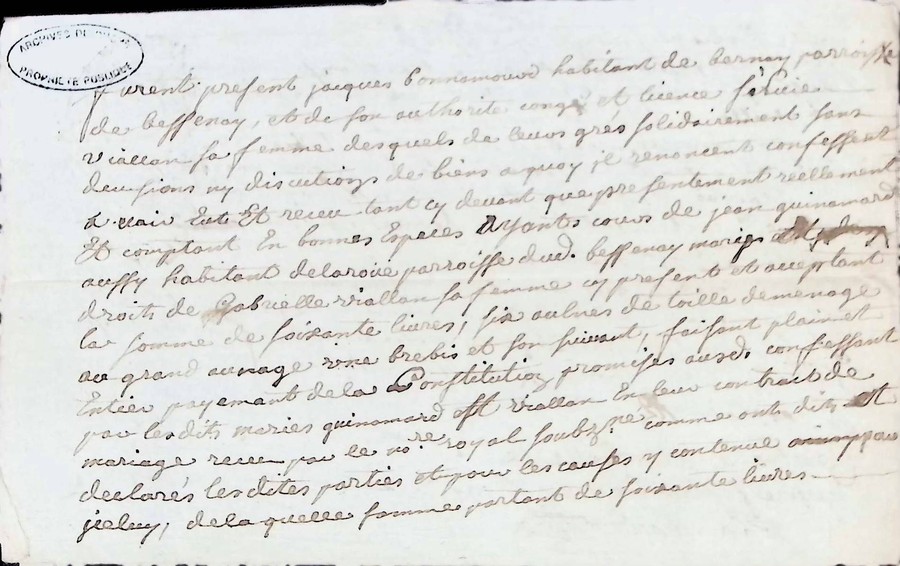 ARCHIVES DU RHONE
PROPRIETE PUBLIQUE
furent present jacques bonnamour habitant de bernay parroisse
de bessenay, et de son authorité congé et licence
viallan sa femme desquels de leurs grés solidairement sans
deuisions ny discutions de biens a quoy jl renoncent confessent
auoir Eut Et receu tant cy deuant que presentement reellement
Et comptant En bonnes Especes Ayants cours de jean guinamard
aussy habitant de laroüe parroisse dud. bessenay maries et
droits de Gabrielle viallan sa femme cy present et acceptant
la somme de soixante liures, six aulnes de toille de menage
au grand aunage vne brebis et son suiuant, faisant plain et
Entier payemant de la Constitution promises ausd. confessant
par lesdits maries guinamard Et viallan En leur contract de
mariage receu par le nore. royal soubzne. comme ont dits et
declarés lesdites parties et pour les causes y contenue
jceluy, de la quelle somme partant de soixante liures